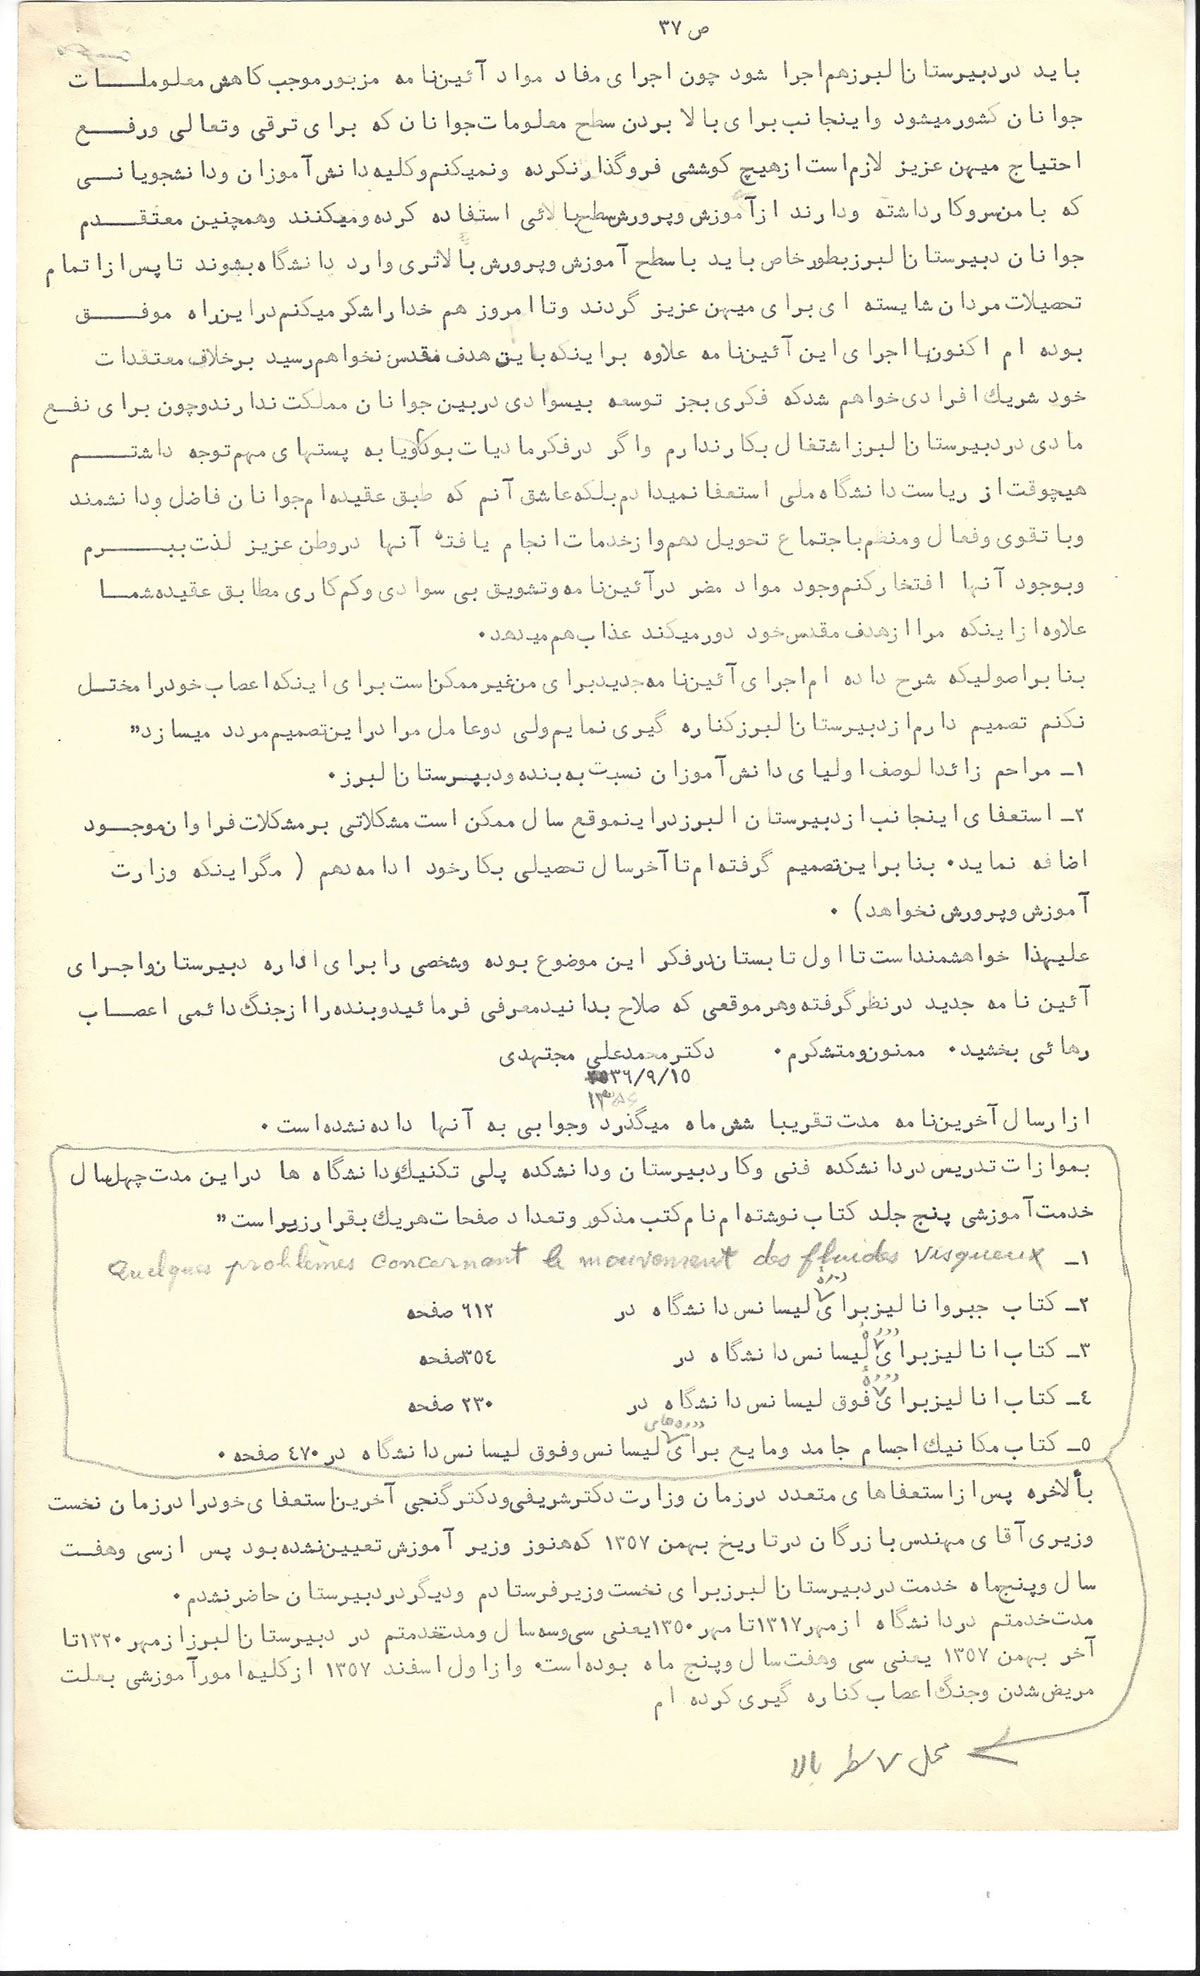 ص ۳۷
باید در دبیرستان البرز هم اجرا شود چون اجرای مفاد مواد آئین‌نامه مزبور موجب کاهش معلومات
جوانان کشور میشود و اینجانب برای بالا بردن سطح معلومات جوانان که برای ترقی و تعالی و رفع
احتیاج میهن عزیز لازم است از هیچ کوششی فروگذار نکرده و نمیکنم و کلیه دانش‌آموزان و دانشجویانی
که با من سروکار داشته و دارند از آموزش و پرورش سطح بالائی استفاده کرده و میکنند و همچنین معتقدم
جوانان دبیرستان البرز بطور خاص باید با سطح آموزش و پرورش بالاتری وارد دانشگاه بشوند تا پس از اتمام
تحصیلات مردان شایسته ای برای میهن عزیز گردند و تا امروز هم خدا را شکر میکنم در این راه موفق
بوده ام اکنون با اجرای این آئین‌نامه علاوه بر اینکه باین هدف مقدس نخواهم رسید برخلاف معتقدات
خود شریك افرادی خواهم شد که فکری بجز توسعه بیسوادی در بین جوانان مملکت ندارند و چون برای نفع
مادی در دبیرستان البرز اشتغال بکار ندارم و اگر در فکر مادیات بوده و یا به پستهای مهم توجه داشتم
هیچوقت از ریاست دانشگاه ملی استعفا نمیدادم بلکه عاشق آنم که طبق عقیده ام جوانان فاضل و دانشمند
و با تقوی و فعال و منظم باجتماع تحویل دهم و از خدمات انجام یافته آنها در وطن عزیز لذت ببرم
و بوجود آنها افتخار کنم وجود مواد مضر در آئین‌نامه و تشویق بی سوادی و کم کاری مطابق عقیده شما
علاوه از اینکه مرا از هدف مقدس خود دور میکند عذاب هم میدهد.
بنا بر اصولیکه شرح داده ام اجرای آئین‌نامه جدید برای من غیر ممکن است برای اینکه اعصاب خود را مختل
نکنم تصمیم دارم از دبیرستان البرز کناره گیری نمایم ولی دو عامل مرا در این تصمیم مردد میسازد"
۱ـ مراحم زائدالوصف اولیای دانش‌آموزان نسبت به بنده و دبیرستان البرز.
۲ـ استعفای اینجانب از دبیرستان البرز در اینموقع سال ممکن است مشکلاتی بر مشکلات فراوان موجود
اضافه نماید. بنابراین تصمیم گرفته ام تا آخر سال تحصیلی بکار خود ادامه دهم ( مگر اینکه وزارت
آموزش و پرورش نخواهد) .
علیهذا خواهشمند است تا اول تابستان در فکر این موضوع بوده و شخصی را برای اداره دبیرستان و اجرای
آئین نامه جدید در نظر گرفته و هر موقعی که صلاح بدانید معرفی فرمائید و بنده را از جنگ دائمی اعصاب
رهائی بخشید. ممنون و متشکرم. دکتر محمدعلی مجتهدی
۳۶/۹/۱۵
از ارسال آخرین نامه مدت تقریبا شش ماه میگذرد و جوابی به آنها داده نشده است.
بموازات تدریس در دانشکده فنی و کار دبیرستان و دانشکده پلی تکنیك و دانشگاه ها در این مدت چهل سال
خدمت آموزشی پنج جلد کتاب نوشته ام نام کتب مذکور و تعداد صفحات هریك بقرار زیر است"
۱ـ Quelques problèmes concernant le mouvement des fluides visqueux
۲ـ کتاب جبر و انالیز برای دوره لیسانس دانشگاه در ۶۱۲ صفحه
۳ـ کتاب انالیز برای دوره لیسانس دانشگاه در ۳۵۴ صفحه
۴ـ کتاب انالیز برای دوره فوق لیسانس دانشگاه در ۲۳۰ صفحه
۵ـ کتاب مکانیك اجسام جامد و مایع برای دوره های لیسانس و فوق لیسانس دانشگاه در ۴۷۰ صفحه.
بالاخره پس از استعفاهای متعدد در زمان وزارت دکتر شریفی و دکتر گنجی آخرین استعفای خود را در زمان نخست
وزیری آقای مهندس بازرگان در تاریخ بهمن ۱۳۵۷ که هنوز وزیر آموزش تعیین نشده بود پس از سی و هفت
سال و پنج ماه خدمت در دبیرستان البرز برای نخست وزیر فرستادم و دیگر در دبیرستان حاضر نشدم.
مدت خدمتم در دانشگاه از مهر ۱۳۱۷ تا مهر ۱۳۵۰ یعنی سی و سه سال و مدت خدمتم در دبیرستان البرز از مهر ۱۳۲۰ تا
آخر بهمن ۱۳۵۷ یعنی سی و هفت سال و پنج ماه بوده است. و از اول اسفند ۱۳۵۷ از کلیه امور آموزشی بعلت
مریض شدن و جنگ اعصاب کناره گیری کرده ام
محل ۷ سطر بالا